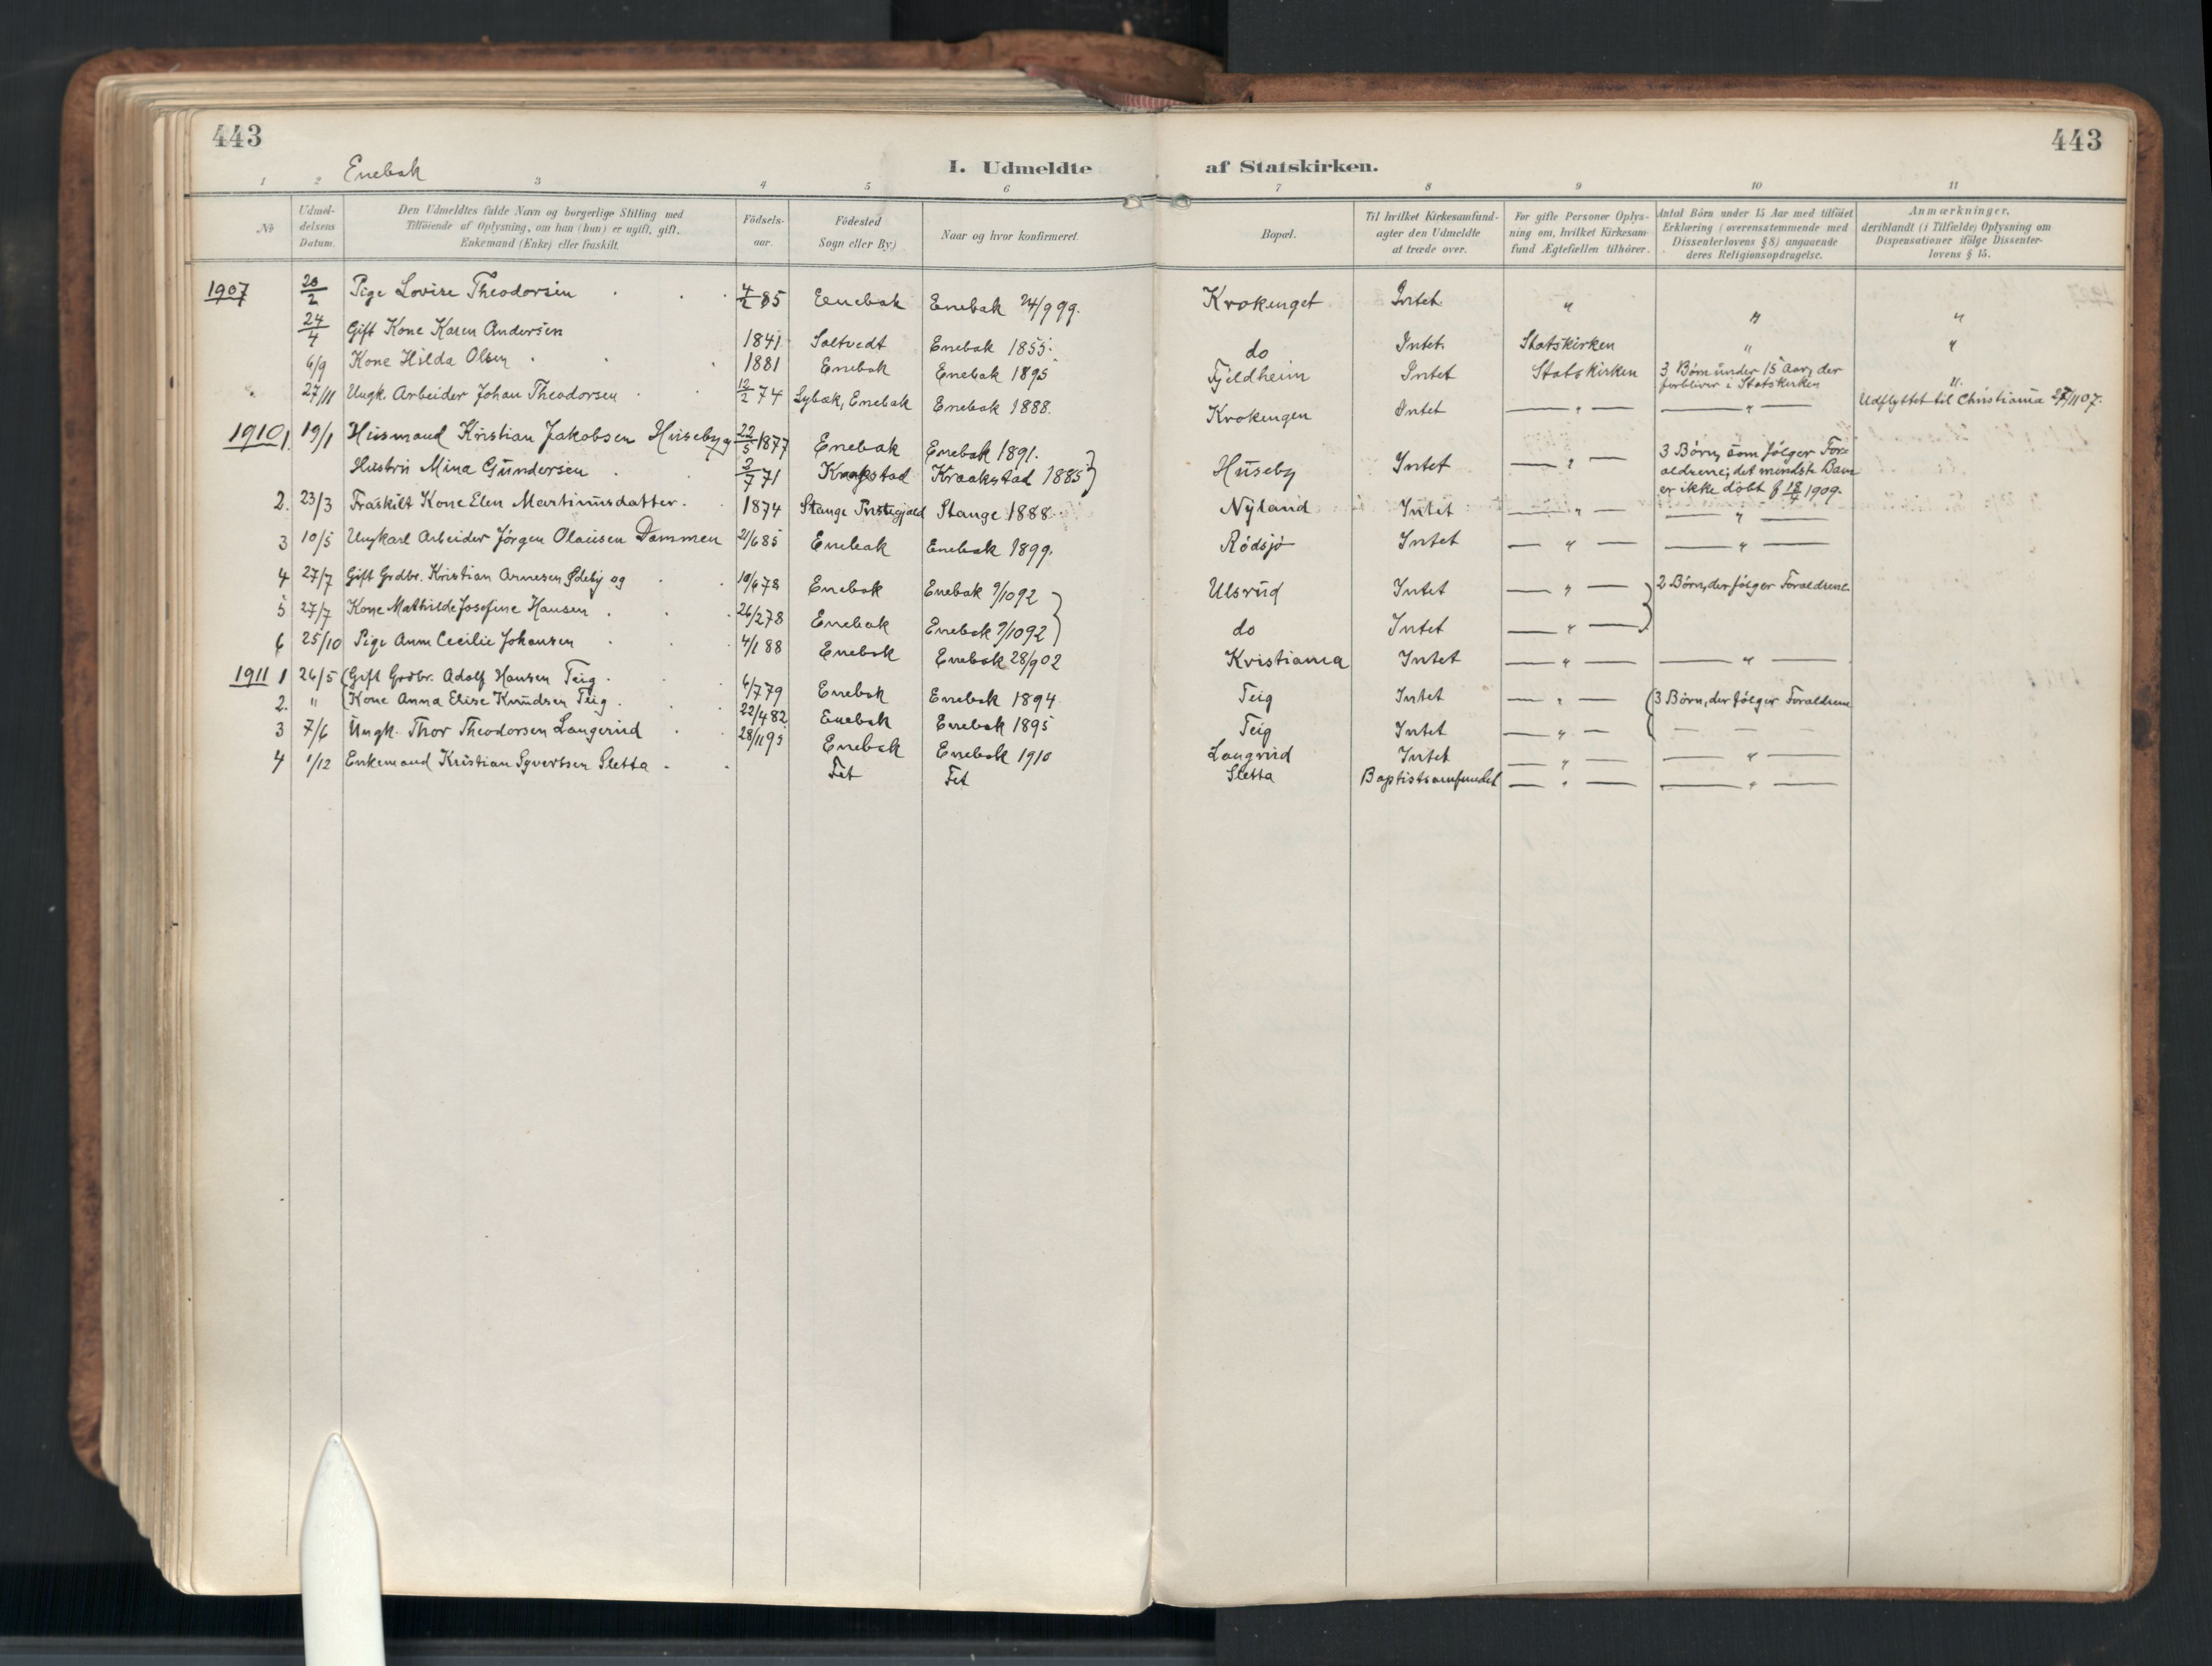 443
443
Enebak
I. Udmeldte af Statskirken.
1 2 3 4 5 6 7 8 9 10 11
№
Udmel-
delsens
Datum.
Den Udmeldtes fulde Navn og borgerlige Stilling med
Tilföiende af Oplysning, om han (hun) er ugift, gift,
Enkemand (Enke) eller fraskilt.
Födsels-
aar.
Födested
Sogn eller By)
Naar og hvor konfirmeret.
Bopæl.
Til hvilket Kirkesamfund-
agter den Udmeldte
at træde over.
For gifte Personer Oplys-
ning om, hvilket Kirkesam-
fund Ægtefællen tilhörer.
Antal Börn under 15 Aar med tilföiet
Erklæring (overensstemmende med
Dissenterlovens § 8) angaaende
deres Religionsopdragelse.
Anmærkninger,
deriblandt (i Tilfælde) Oplysning om
Dispensationer ifölge Dissenter-
lovens § 15.
1907 20/2 Pige Lovise Theodorsen 4/2 85 Enebak Enebak 24/9 99. Krokenget Intet " " "
24/4 Gift Kone Karen Andersen 1841 Soltvedt Enebak 1855. do Intet. Statskirken " "
6/9 Kone Hilda Olsen 1881 Enebak Enebak 1895 Fjeldheim Intet Statskirken 3 Børn under 15 Aar, der
forbliver i Statskirken "
27/11 Ungk. Arbeider Johan Theodorsen 12/2 74 Lybæk, Enebak Enebak 1888. Krokengen Intet — " — — " — Udflyttet til Christiania 27/11 07.
1910 1. 19/1 Husmand Kristian Jakobsen Huseby og 22/5 1877 Enebak Enebak 1891.
Hustru Mina Gundersen 2/7 71 Kragstad Kraakstad 1885 } Huseby Intet — " — 3 Børn, som følger For-
ældrene; det mindste Barn
er ikke døbt f 18/4 1909.
2. 23/3 Fraskilt Kone Elen Martinusdatter. 1874 Stange Prstegjæld Stange 1888. Nyland Intet — " — — " —
3 10/5 Ungkarl Arbeider Jørgen Olausen Dammen 21/6 85 Enebak Enebak 1899. Rødsjø Intet — " — — " —
4 27/7 Gift Grdbr. Kristian Arnesen Ødeby og 10/6 78 Enebak Enebak 9/10 92 Ulsrud Intet — " — 2 Børn, der følger Forældrene.
5 27/7 Kone Mathilde Josefine Hansen. 26/2 78 Enebak Enebak 9/10 92 } do Intet — " — }
6 25/10 Pige Anna Cecilie Johansen 4/1 88 Enebak Enebak 28/9 02 Kristiania Intet — " — — " —
1911 1 26/5 (Gift Grdbr. Adolf Hansen Teig. 6/7 79 Enebak Enebak 1894. Teig Intet — " — (3 Børn, der følger Forældrene
2. " (Kone Anna Elise Knudsen Teig. 22/4 82 Enebak Enebak 1895 Teig Intet — " — — — —
3 7/6 Ungk. Thor Theodorsen Langerud 28/11 95 Enebak Enebak 1910 Langrud Intet — " — — " —
4 1/12 Enkemand Kristian Syvertsen Sletta. Fet Fet Sletta Baptistsamfundet — " — — " —